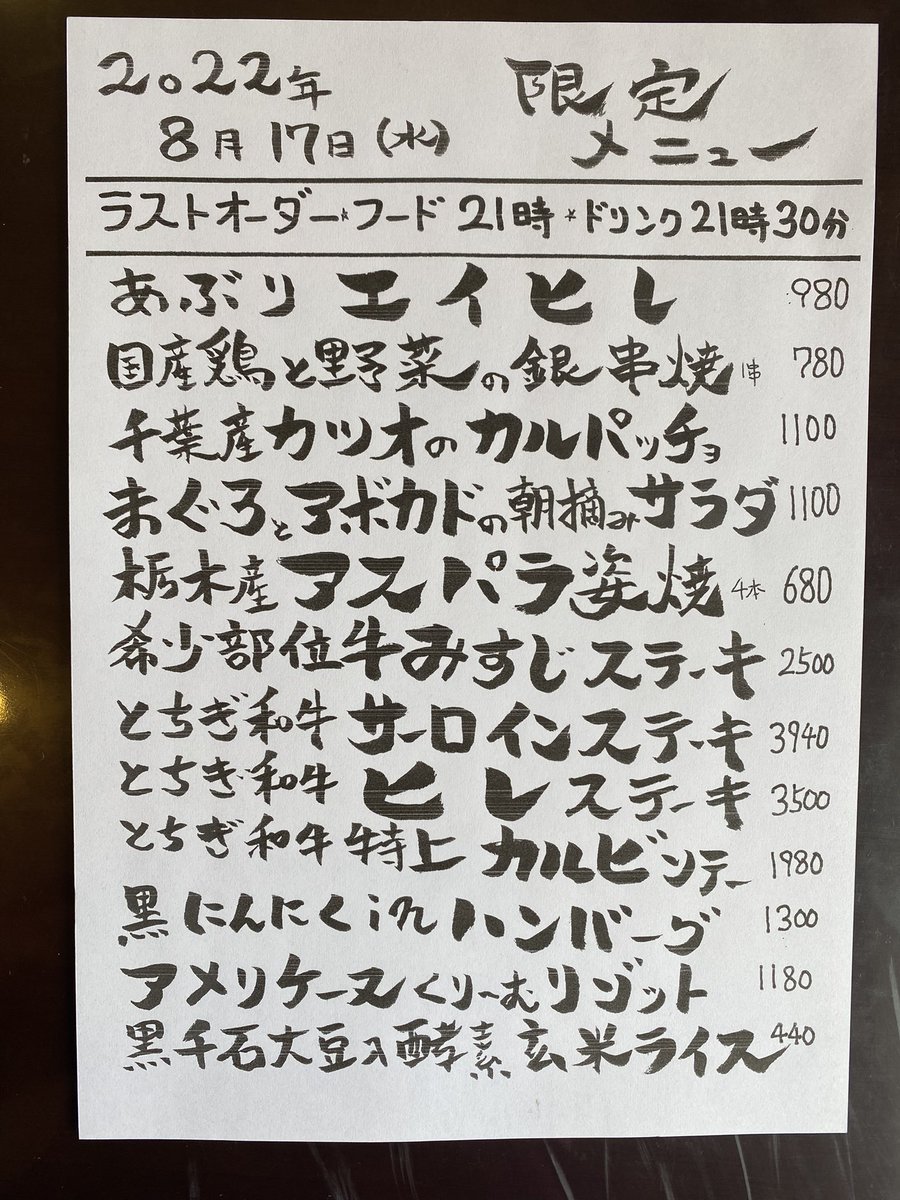 2022年
8月17日(水)
限定
メニュー
ラストオーダー*フード 21時 *ドリンク21時30分
あぶり エイヒレ 980
国産鶏と野菜の銀串焼 1串 780
千葉産カツオのカルパッチョ 1100
まぐろとアボカドの朝摘みサラダ 1100
栃木産アスパラ姿焼 4本 680
希少部位牛みすじステーキ 2500
とちぎ和牛 サーロインステーキ 3940
とちぎ和牛 ヒレステーキ 3500
とちぎ和牛特上 カルビンテー 1980
黒にんにくinハンバーグ 1300
アメリケーヌくりーむリゾット 1180
黒千石大豆入酵素玄米ライス 440